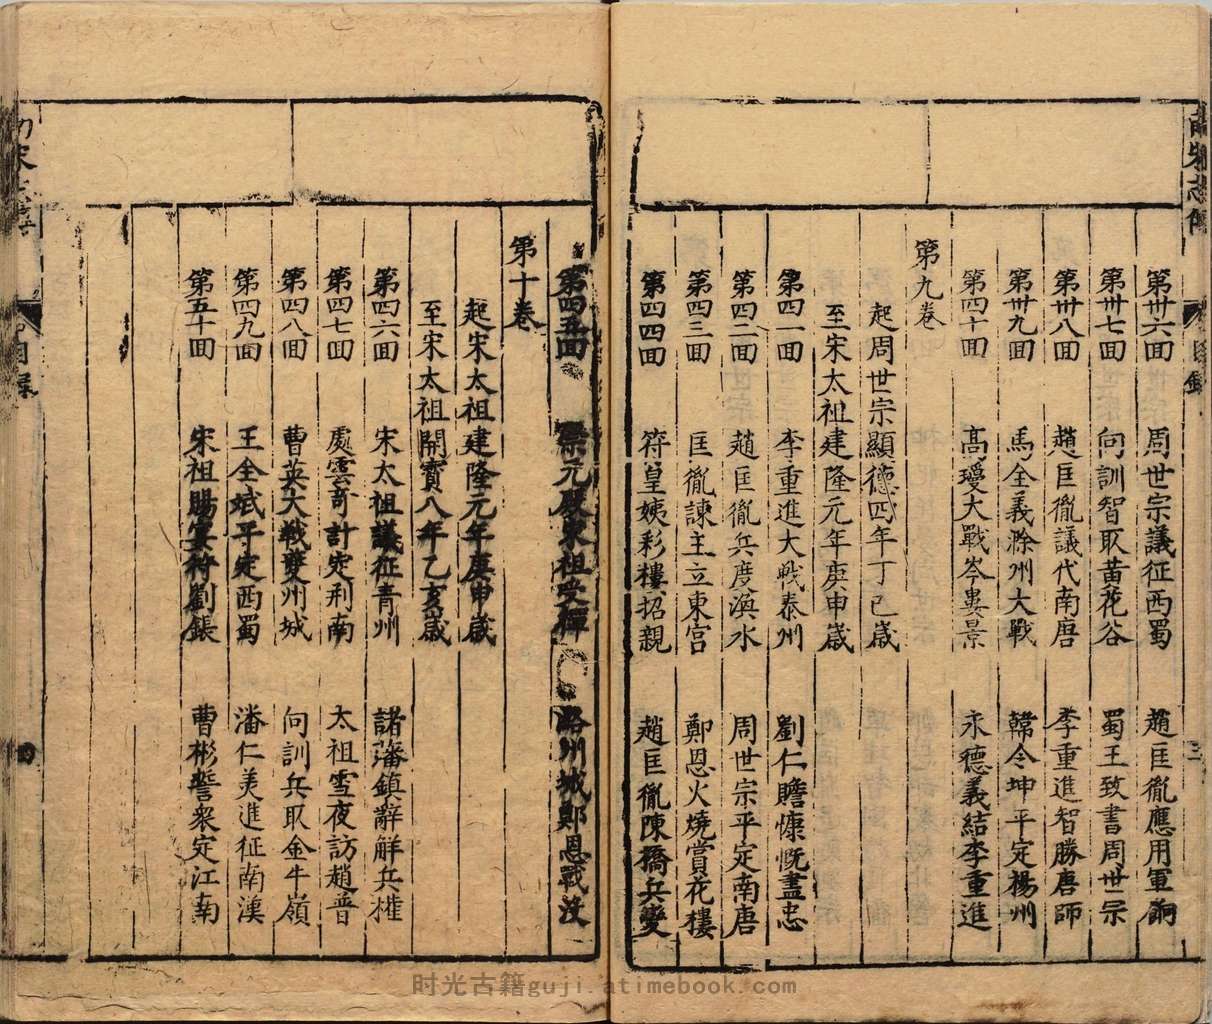 第卅六面　周世宗議征西蜀　趙匡胤應用軍餉
第卅七面　向訓智取黃花谷　蜀王致書周世宗
第卅八面　趙匡胤議代南唐　李重進智勝唐師
第卅九面　馬全義滁州大戰　韓令坤平定楊州
第四十面　高瓊大戰岑婁景　永德義結李重進
第九卷
起周世宗顯德四年丁巳歲
至宋太祖建隆元年庚申歲
第四一面　李重進大戰泰州　劉仁贍慷慨盡忠
第四二面　趙匡胤兵度渙水　周世宗平定南唐
第四三面　匡胤諫主立東宮　鄭恩火燒賞花樓
第四四面　符皇姨彩樓招親　趙匡胤陳橋兵變
三
第四五面　崇元殿宋祖受禪　潞州城鄭恩戰沒
第十卷
起宋太祖建隆元年庚申歲
至宋太祖開寶八年乙亥歲
第四六面　宋太祖議征青州　諸藩鎮辭解兵權
第四七面　處雲奇計定荆南　太祖雪夜訪趙普
第四八面　曹英大戰夔州城　向訓兵取金牛嶺
第四九面　王全斌平定西蜀　潘仁美進征南漢
第五十面　宋祖賜宴待劉鋹　曹彬誓衆定江南
目錄
四
时光古籍guji.atimebook.com